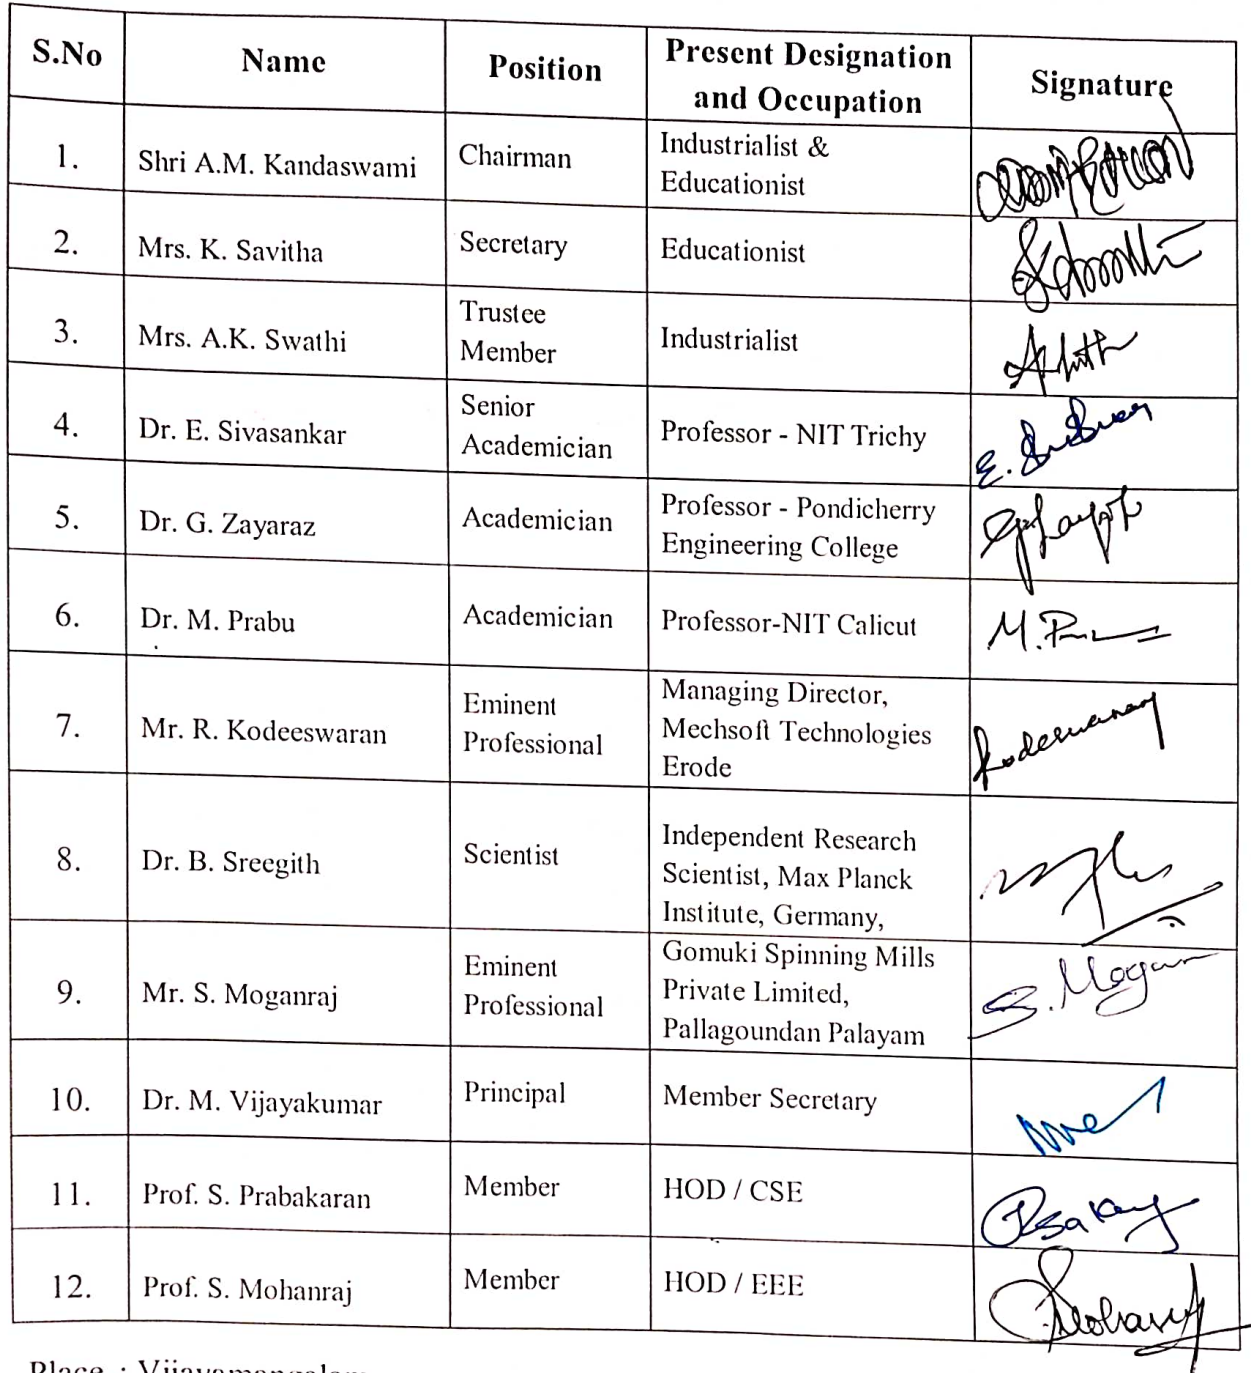 S.No Name Position Present Designation
and Occupation Signature
1. Shri A.M. Kandaswami Chairman Industrialist &
Educationist
2. Mrs. K. Savitha Secretary Educationist
3. Mrs. A.K. Swathi Trustee
Member Industrialist
4. Dr. E. Sivasankar Senior
Academician Professor - NIT Trichy
5. Dr. G. Zayaraz Academician Professor - Pondicherry
Engineering College
6. Dr. M. Prabu Academician Professor-NIT Calicut
7. Mr. R. Kodeeswaran Eminent
Professional Managing Director,
Mechsoft Technologies
Erode
8. Dr. B. Sreegith Scientist Independent Research
Scientist, Max Planck
Institute, Germany,
9. Mr. S. Moganraj Eminent
Professional Gomuki Spinning Mills
Private Limited,
Pallagoundan Palayam
10. Dr. M. Vijayakumar Principal Member Secretary
11. Prof. S. Prabakaran Member HOD / CSE
12. Prof. S. Mohanraj Member HOD / EEE
Place : Vijayamangalam